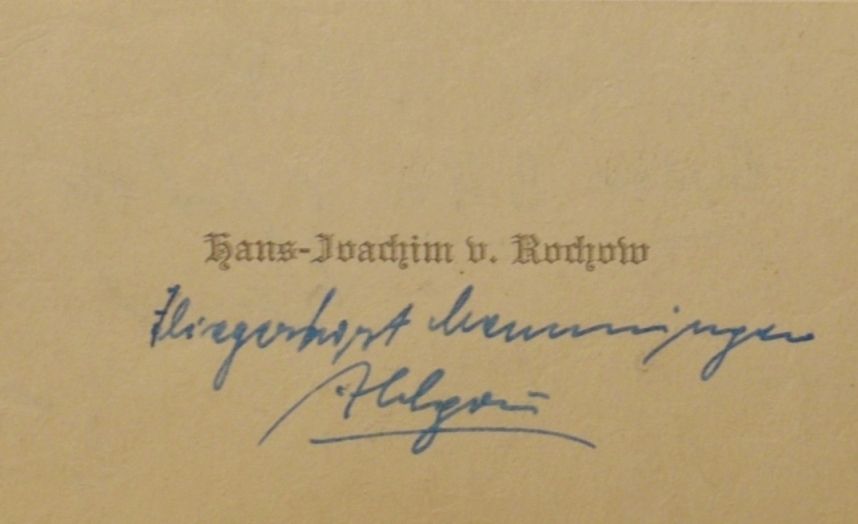 Hans-Joachim v. Rochow
Fliegerhorst Memmingen
Allgäu